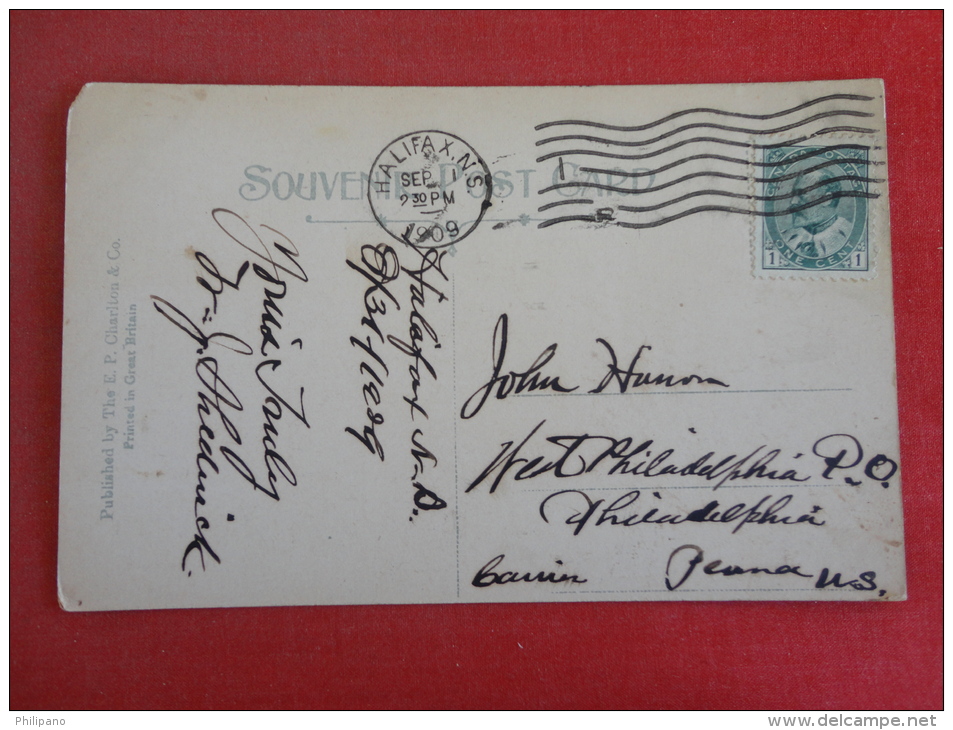 SOUVENIR POST CARD
HALIFAX, N.S.
SEP 1
2 30 PM
1909
1
CANADA POSTAGE
ONE CENT
1 1
Halafax N.S.
8/31/1909
Yours Truly
J. Shedwick.
John Hanon
West Philadelphia P.O.
Philadelphia
Carrier Penna U.S.
Published by The E. P. Charlton & Co.
Printed in Great Britain
Philipano
www.delcampe.net